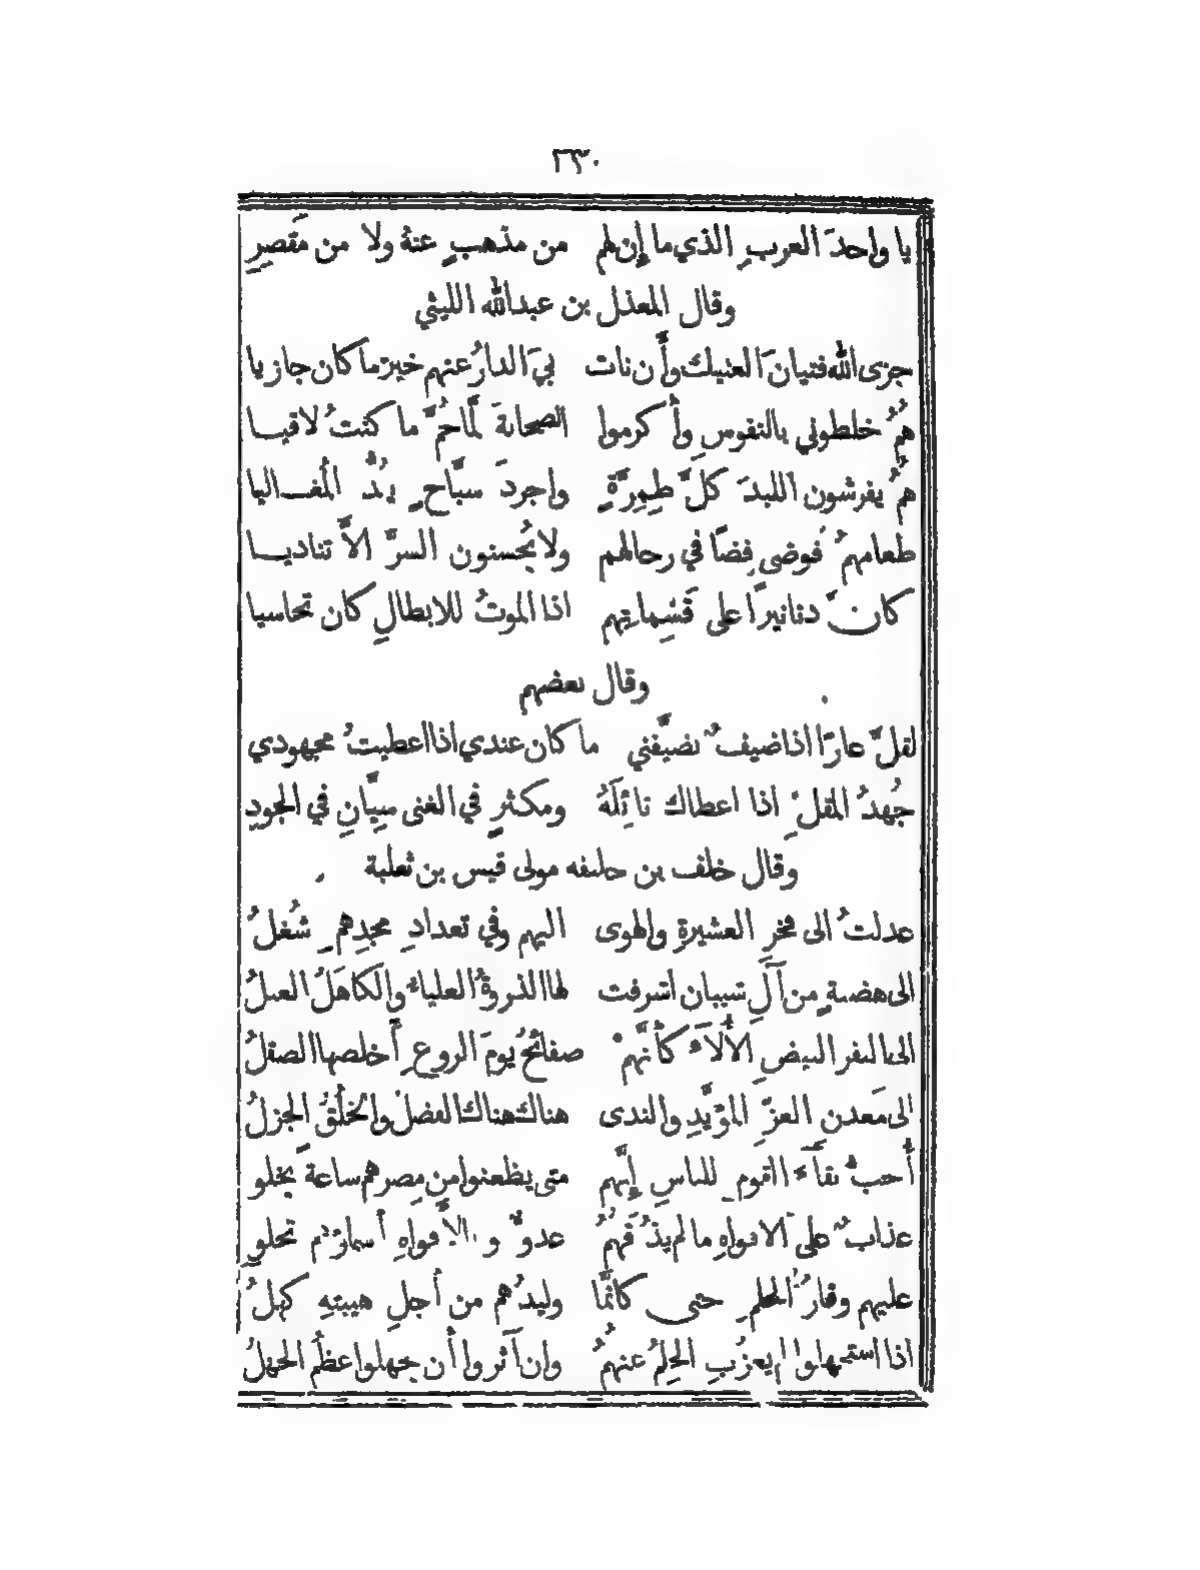 ٢٣٠
يا واحدَ العربِ الذي ما إن لهم من مذهبٍ عنهُ ولا من مَقصِرِ
وقال المعذل بن عبدالله الليثي
جزى الله فتيانَ العتيك وأَن نات بيَ الدارُ عنهم خير ما كان جازيا
همُ خلطوني بالنفوسِ وأَكرموا الصحابةَ لمَّا حُمَّ ما كنتُ لاقيـا
همُ يفرشون اللبدَ كلَّ طِمِرَّةٍ واجردَ سبَّاحٍ يبُذُّ المُغـاليا
طعامهمُ فوضى فضًا في رحالهم ولا يُحسنون السرَّ الاَّ تناديـا
كانَّ دنانيرًا على قَسِماتِهم اذا الموتُ للابطالِ كان تحاسيا
وقال بعضهم
لقلَّ عارًا اذا ضيفٌ تضيَّفني ما كان عندي اذا اعطيتُ مجهودي
جُهدُ المقلِّ اذا اعطاك نائِلَهُ ومكثرٍ في الغنى سيَّانِ في الجودِ
وقال خلف بن خليفه مولى قيس بن ثعلبة
عدلتُ الى فخرِ العشيرةِ والهوى اليهم وفي تعدادِ مجدِهمِ شُغلُ
الى هضبةٍ من آلِ شيبان اشرفت لها الذروةُ العلياءُ والكاهَلُ العبلُ
الى النفر البيضِ الأَلآَءِ كأَنَّهمْ صفائحُ يومَ الروعِ أَخلصها الصقلُ
الى مَعدن العزِّ المؤَيَّدِ والندى هناك هناك الفضلُ والخُلُقُ الجزلُ
أُحبُّ بقآءَ القومِ للناسِ إِنَّهم متى يظعنوا من مِصرِهم ساعةً يخلو
عذابٌ على الافواهِ ما لم يذُقهُمُ عدوٌّ و بالأَفواهِ أَسماؤهم تحلو
عليهم وقارُ الحلمِ حتى كانَّما وليدُهم من أَجلِ هيبتهِ كهلُ
اذا استجهلوا لم يعزُبِ الحِلمُ عنهمُ وان آثروا أَن يجهلوا عظُمَ الجهلُ